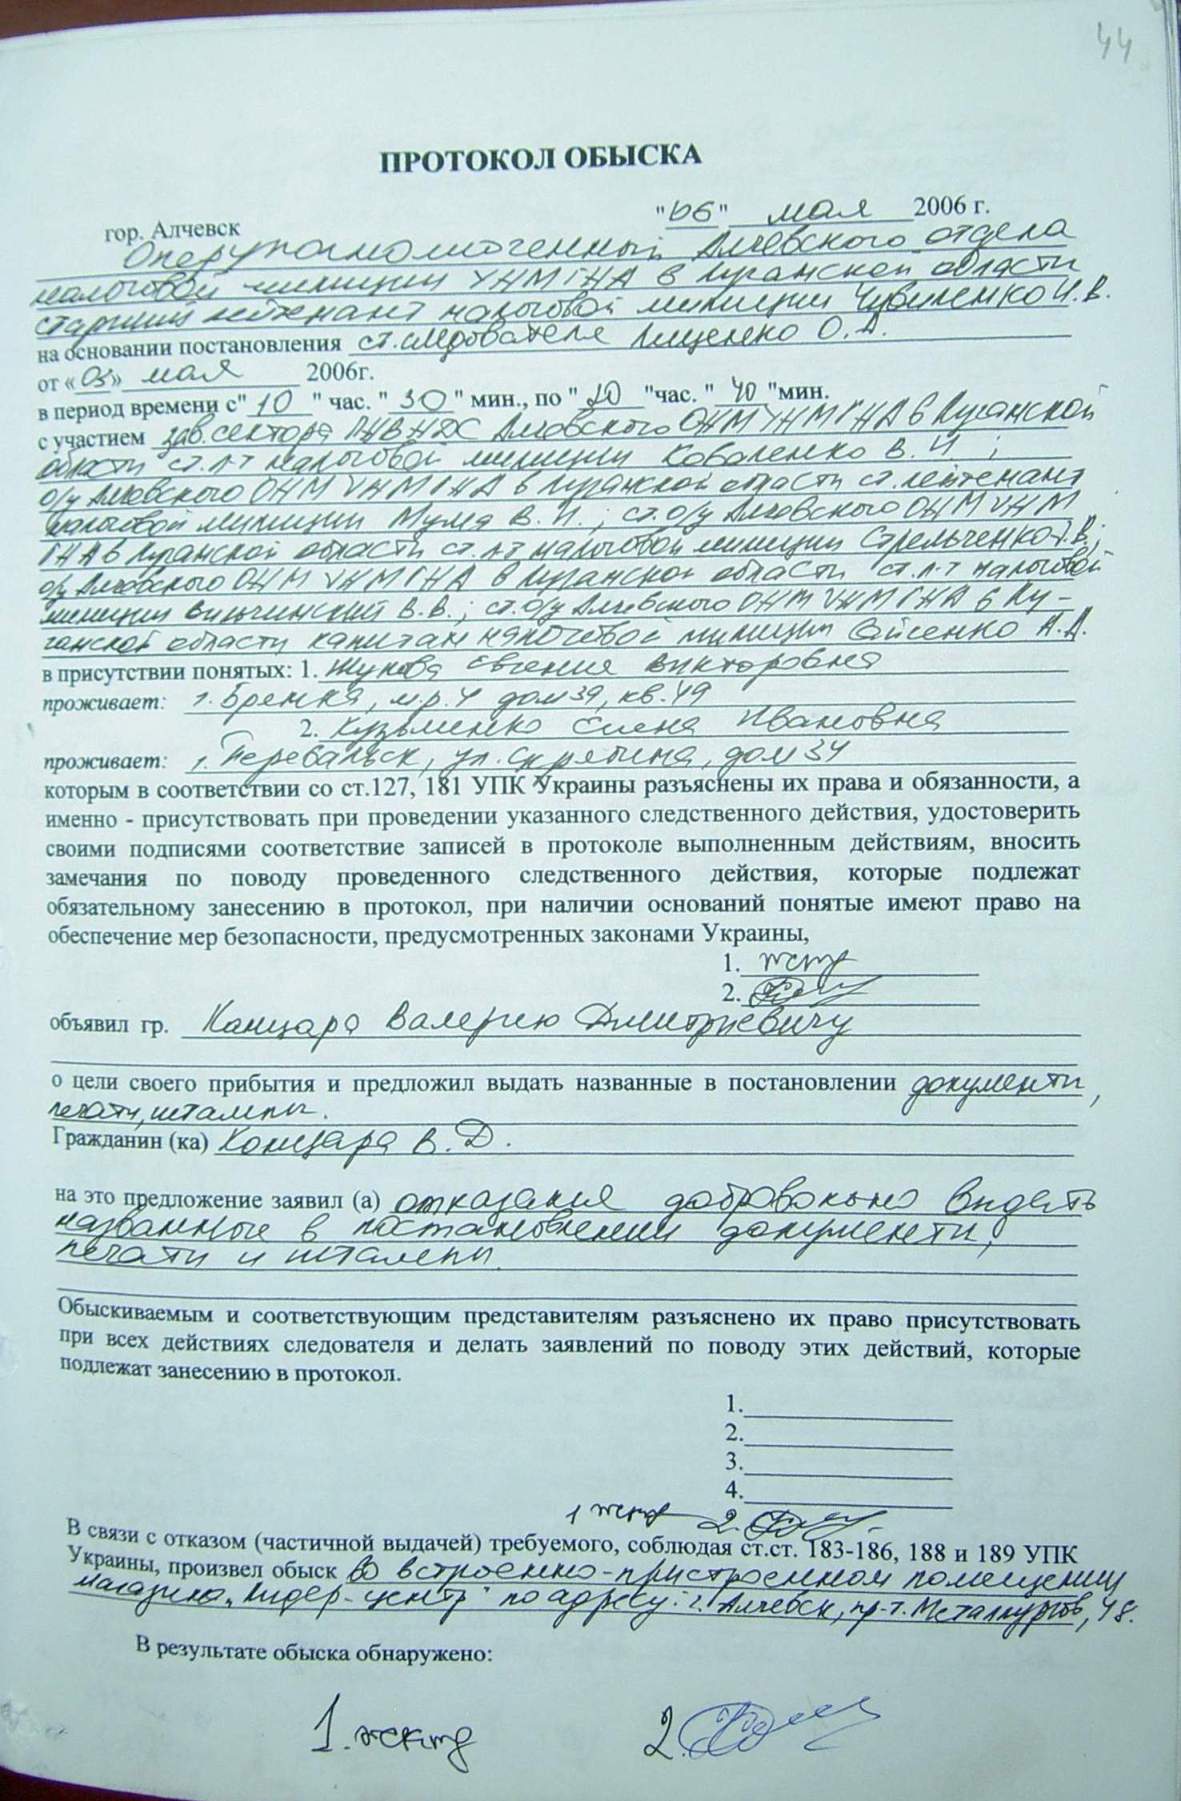 44
ПРОТОКОЛ ОБЫСКА
гор. Алчевск "06" мая 2006 г.
Оперуполномоченный Алчевского отдела
налоговой милиции УНМ ГНА в Луганской области
старший лейтенант налоговой милиции И.В.
на основании постановления ст. следователя Лищенко О.А.
от «05» мая 2006г.
в период времени с "10" час. "30" мин., по "20" час. "40" мин.
с участием зав. сектора Алчевского ОНМ УНМ ГНА в Луганской
области ст. л-т налоговой милиции Коваленко В.И.;
о/у Алчевского ОНМ УНМ ГНА в Луганской области ст. лейтенант
налоговой милиции В.И.; ст. о/у Алчевского ОНМ УНМ
ГНА в Луганской области ст. л-т налоговой милиции Стрельченко В.;
о/у Алчевского ОНМ УНМ ГНА в Луганской области ст. л-т налоговой
милиции В.В.; ст. о/у Алчевского ОНМ УНМ ГНА в Лу-
ганской области капитан налоговой милиции А.А.
в присутствии понятых: 1. Жукова Евгения Викторовна
проживает: г. Брянка, мр. 4 дом 39, кв. 49
2. Кузьменко Елена Ивановна
проживает: г. Перевальск, ул. Скрябина, дом 34
которым в соответствии со ст.127, 181 УПК Украины разъяснены их права и обязанности, а
именно - присутствовать при проведении указанного следственного действия, удостоверить
своими подписями соответствие записей в протоколе выполненным действиям, вносить
замечания по поводу проведенного следственного действия, которые подлежат
обязательному занесению в протокол, при наличии оснований понятые имеют право на
обеспечение мер безопасности, предусмотренных законами Украины,
1.
2.
объявил гр. Канцара Валерию Дмитриевичу
о цели своего прибытия и предложил выдать названные в постановлении документы,
печати, штампы.
Гражданин (ка) Канцара В.Д.
на это предложение заявил (а) добровольно выдать
названные в постановлении документы,
печати и штампы.
Обыскиваемым и соответствующим представителям разъяснено их право присутствовать
при всех действиях следователя и делать заявлений по поводу этих действий, которые
подлежат занесению в протокол.
1.
2.
3.
4.
1 2.
В связи с отказом (частичной выдачей) требуемого, соблюдая ст.ст. 183-186, 188 и 189 УПК
Украины, произвел обыск во встроенно-пристроенном помещении
магазина „Лидер-центр" по адресу: г. Алчевск, пр-т. Металлургов, 48.
В результате обыска обнаружено:
1. 2.